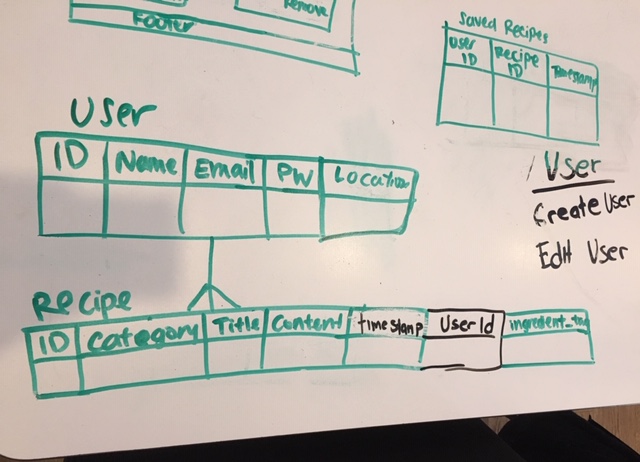 Remove
Footer
Saved Recipes
User ID Recipe ID Timestamp
User
ID Name Email PW Location
User
Create User
Edit User
Recipe
ID Category Title Content timestamp User Id